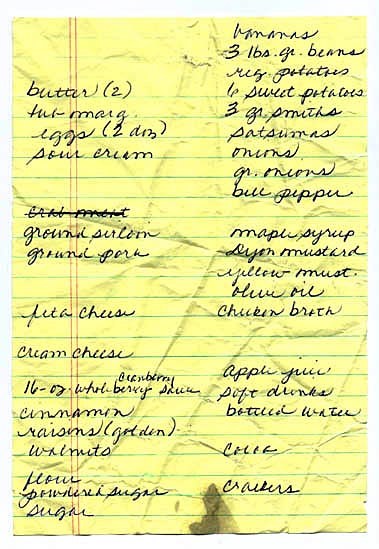 butter (2)
tub marg.
eggs (2 doz)
sour cream
crab meat
ground sirloin
ground pork
feta cheese
cream cheese
16-oz. whole berry cranberry sauce
cinnamon
raisins (golden)
walnuts
flour
powdered sugar
sugar
bananas
3 lbs. gr. beans
reg. potatoes
6 sweet potatoes
3 gr. smiths
satsumas
onions
gr. onions
bell pepper
maple syrup
Dijon mustard
yellow must.
olive oil
chicken broth
apple juice
soft drinks
bottled water
cocoa
crackers